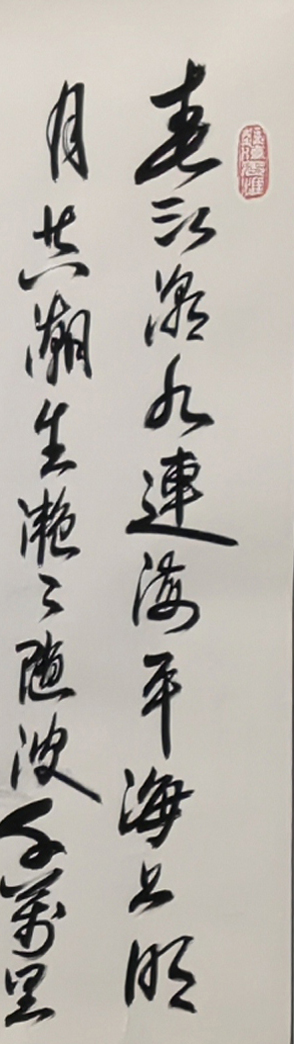 春江潮水連海平海上明
月共潮生灔〻隨波千萬里